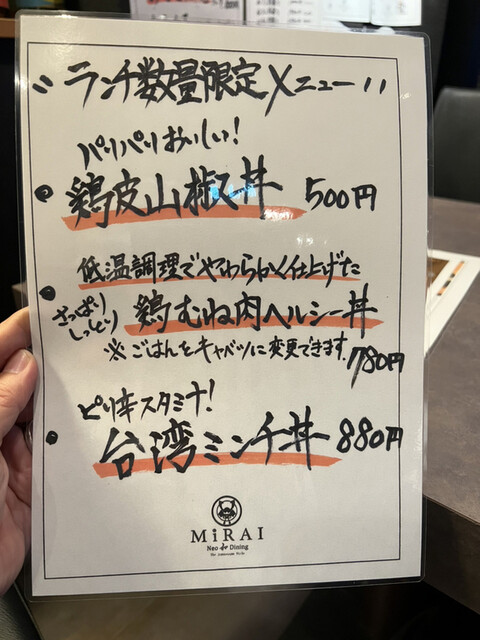 〃ランチ数量限定メニュー〃
パリパリおいしい!
・鶏皮山椒丼 500円
低温調理でやわらかく仕上げた
・さっぱりしっとり 鶏むね肉ヘルシー丼
※ごはんをキャベツに変更できます。780円
ピリ辛スタミナ!
・台湾ミンチ丼 880円
MiRAI
Neo Dining